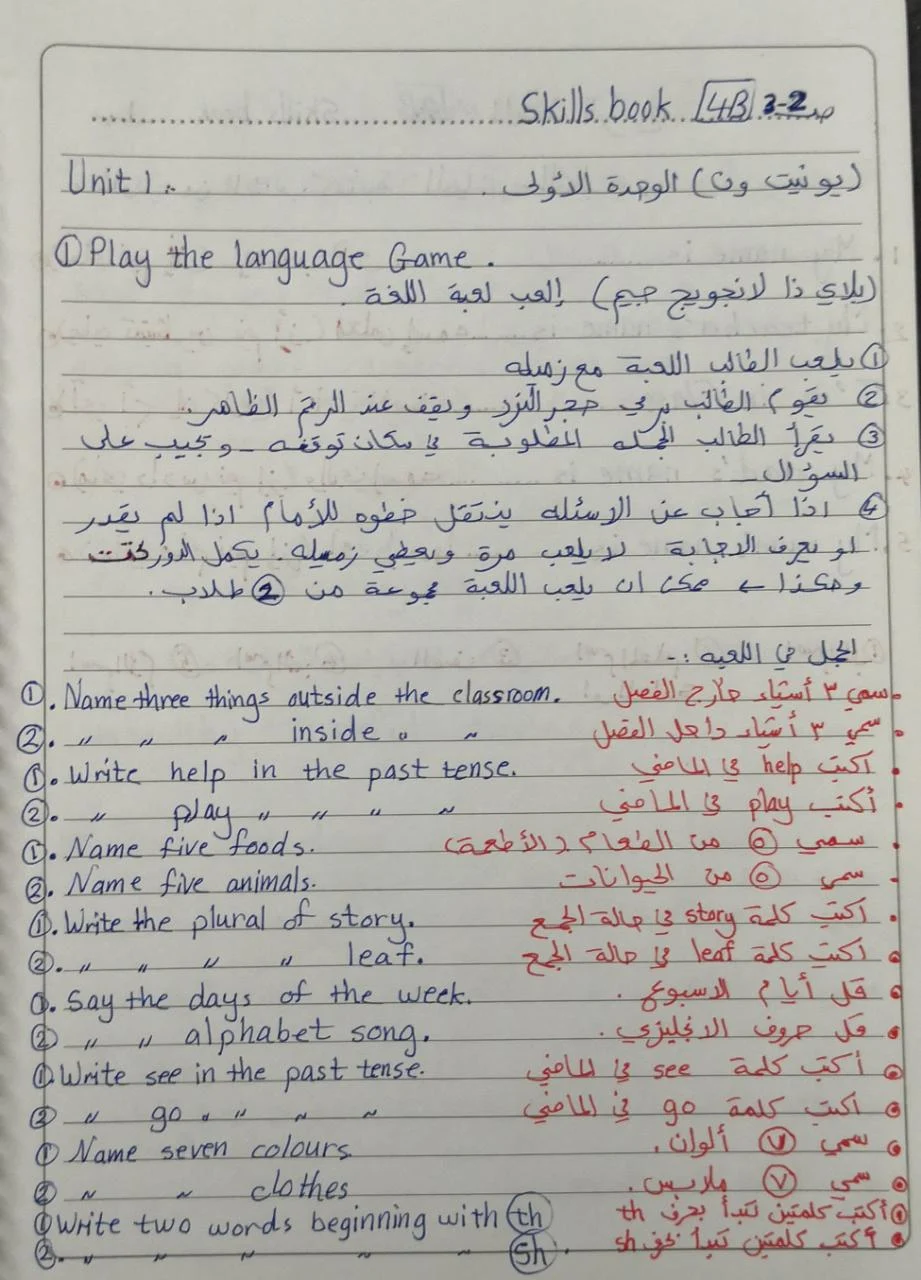 Skills book 4B ص 2-3
Unit 1:- (يونيت ون) الوحدة الأولى.
① Play the language Game.
(بلاي ذا لانجويج جيم) إلعب لعبة اللغة.
① يلعب الطالب اللعبة مع زميله
② يقوم الطالب برمي حجر النرد ويقف عند الرقم الظاهر.
③ يقرأ الطالب الجمله المطلوبة في مكان توقفه - ويجيب على
السؤال -
④ اذا أجاب عن الاسئله ينتقل خطوه للأمام اذا لم يقدر
او يعرف الاجابة لا يلعب مرة ويعطي زميله. يكمل الدور
وهكذا ← ممكن ان يلعب اللعبة مجموعة من ② طلاب.
الجمل في اللعبه :-
①. Name three things outside the classroom. سمي ٣ أشياء خارج الفصل
②. " " " inside " " سمي ٣ أشياء داخل الفصل
①. Write help in the past tense. اكتب help في الماضي
②. " play " " " " أكتب play في الماضي
①. Name five foods. سمي ⑤ من الطعام (الأطعمة)
②. Name five animals. سمي ⑤ من الحيوانات
①. Write the plural of story. اكتب كلمة story في حالة الجمع
②. " " " " leaf. اكتب كلمة leaf في حالة الجمع
①. Say the days of the week. قل أيام الاسبوع.
② " " alphabet song. قل حروف الانجليزي.
① Write see in the past tense. أكتب كلمة see في الماضي
② " go " " " " اكتب كلمة go في الماضي
① Name seven colours سمي ⑦ ألوان.
② " " clothes سمي ⑦ ملابس.
① Write two words beginning with th أكتب كلمتين تبدأ بحرف th
②. " " " " " sh. أكتب كلمتين تبدأ بحرف sh